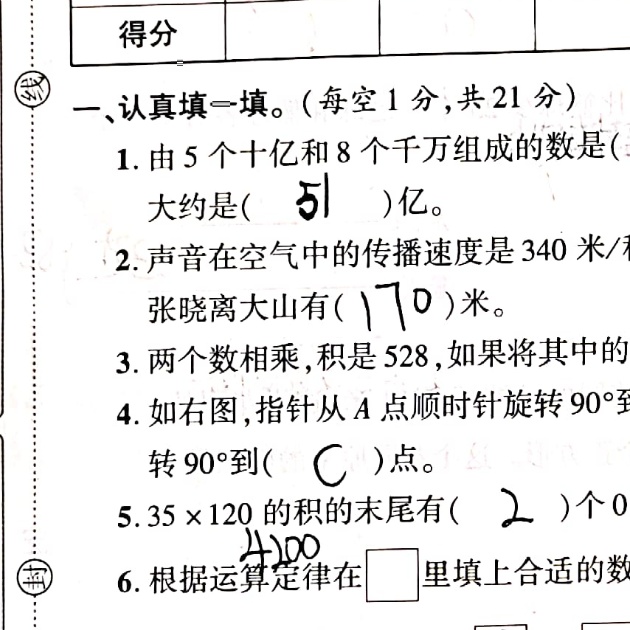 得分
线
一、认真填一填。(每空1分,共21分)
1.由5个十亿和8个千万组成的数是(
大约是( 51 )亿。
2.声音在空气中的传播速度是340米/
张晓离大山有( 170 )米。
3.两个数相乘,积是528,如果将其中的
4.如右图,指针从A点顺时针旋转90°到
转90°到( C )点。
5.35×120的积的末尾有( 2 )个0
4200
6.根据运算定律在□里填上合适的数
封